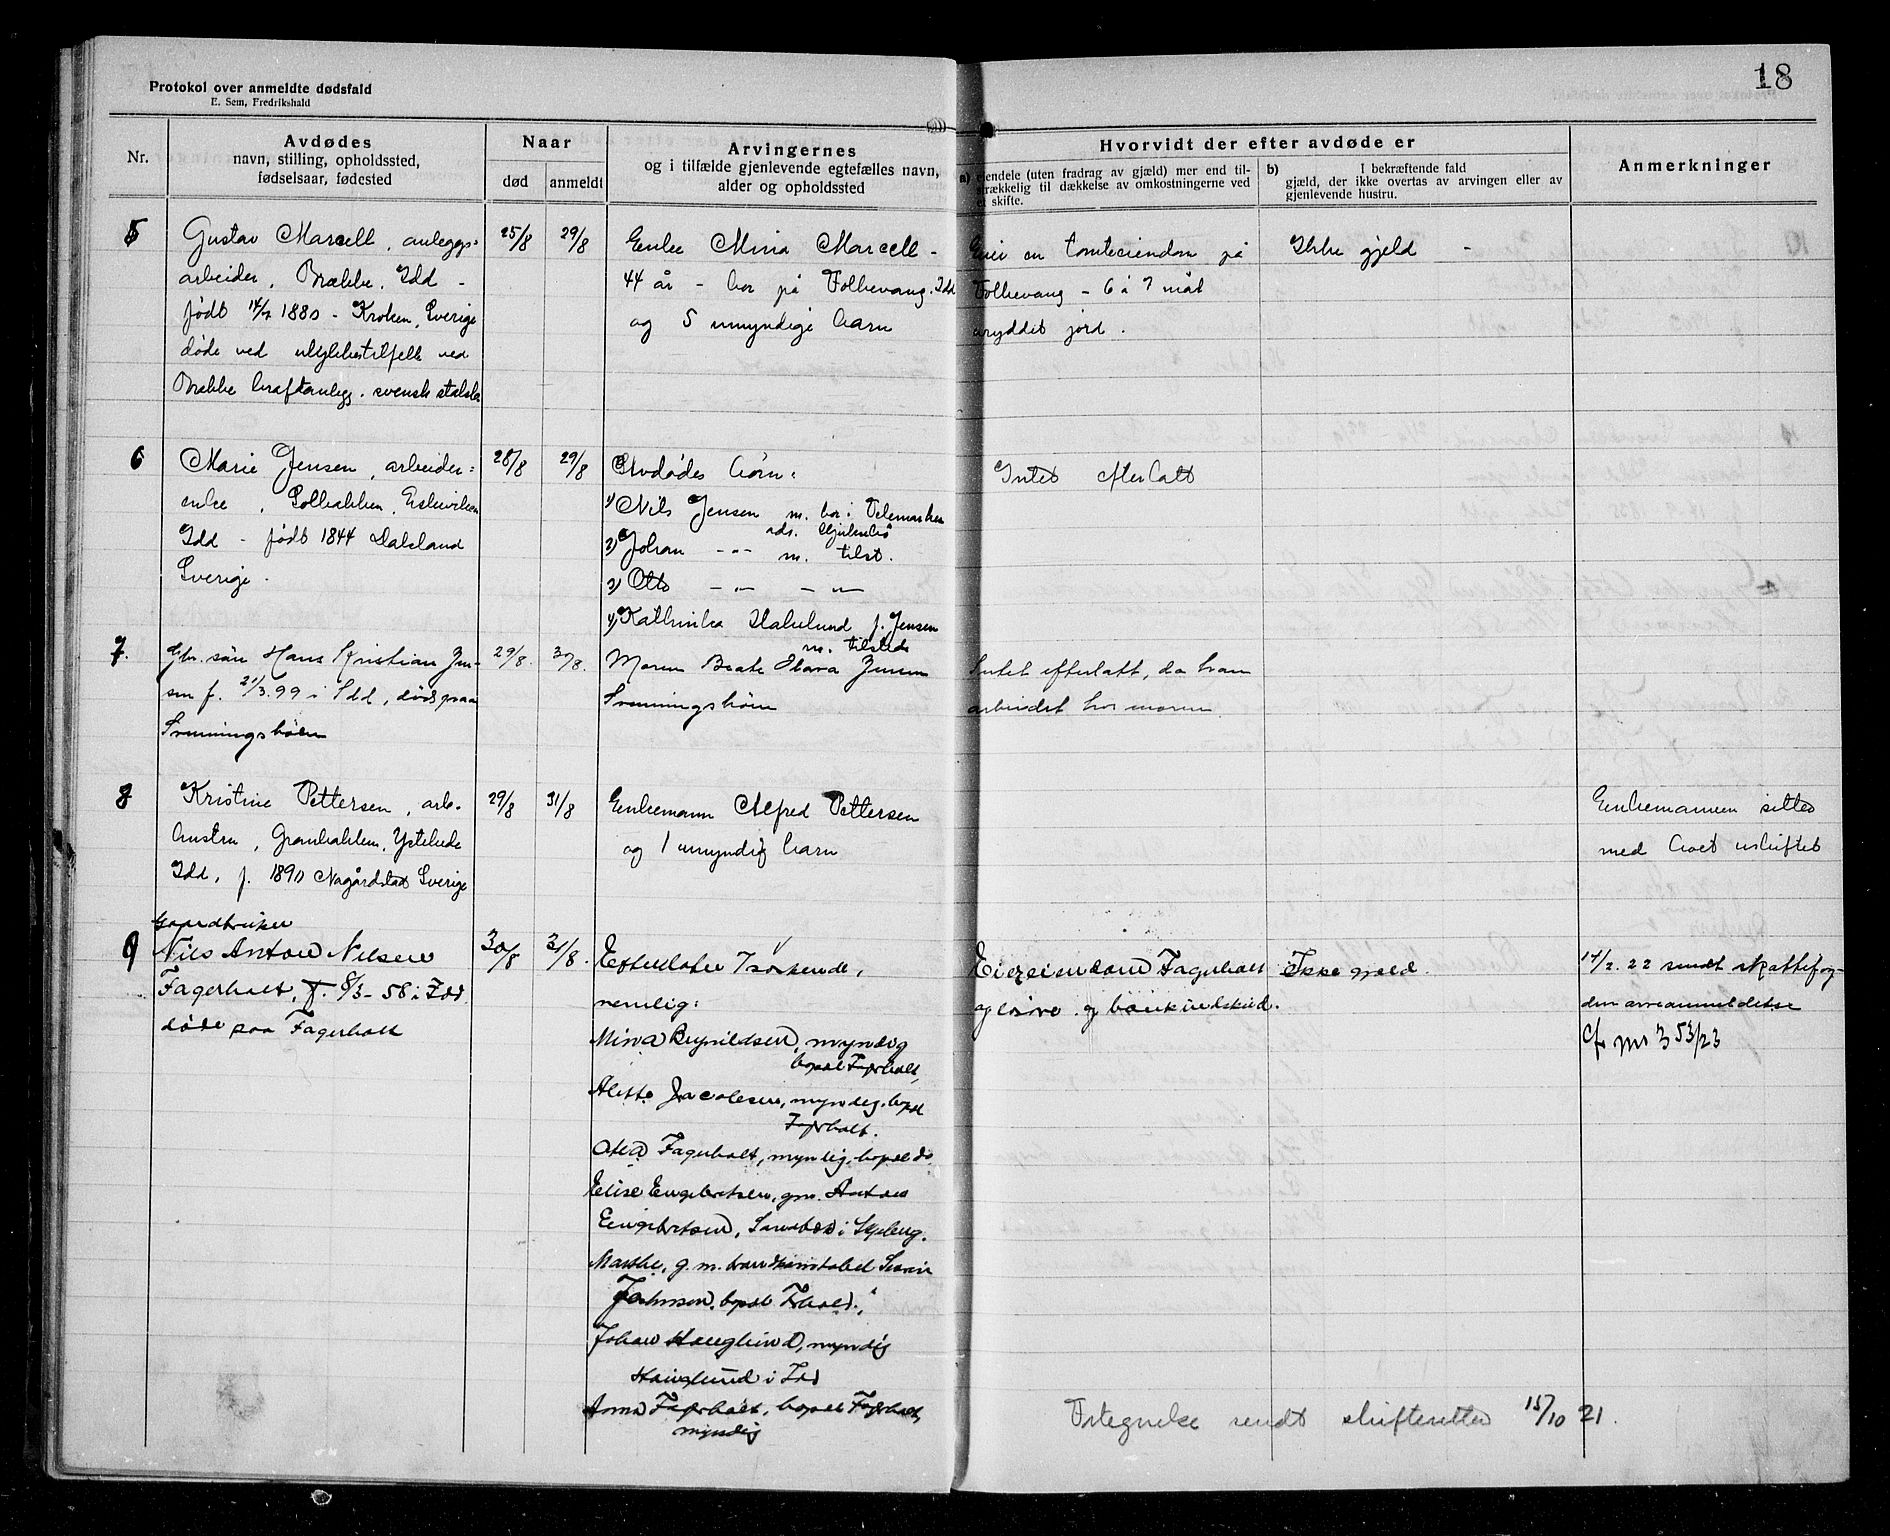 18
Protokol over anmeldte dødsfald
E. Sem, Fredrikshald
Nr.
Avdødes
navn, stilling, opholdssted,
fødselsaar, fødested
Naar
død
anmeldt
Arvingernes
og i tilfælde gjenlevende egtefælles navn,
alder og opholdssted
Hvorvidt der efter avdøde er
a) eiendele (uten fradrag av gjæld) mer end til-
strækkelig til dækkelse av omkostningerne ved
et skifte.
b) I bekræftende fald
gjæld, der ikke overtas av arvingen eller av
gjenlevende hustru.
Anmerkninger
5
Gustav Marcell, anleggs-
arbeider, Brække, Idd -
født 14/7 1880 - Kroken, Sverige
døde ved ulykkestilfelle ved
Brække kraftanlegg. svensk
25/8
29/8
Enke Mina Marcell -
44 år - bor på Folkevang, Idd
og 5 umyndige barn
Eier en tomteeiendom på
Folkevang - 6 à 7 mål
uryddet jord.
Ikke gjeld -
6
Marie Jensen, arbeider-
enke, Solbakken, Eskeviken
Idd - født 1844 Dalsland
Sverige.
28/8
29/8
Avdødes børn:
1) Nils Jensen m. bor i Telemarken
ads.
2) Johan -"- m. tilst.
3) Otto -"- -"-
4) Kathinka Hakelund f. Jensen
m. tilstede
Intet efterlatt
7.
Gbr. søn Hans Kristian Jen-
sen f. 21/3.99 i Idd, død paa
Svenningsbøen
29/8.
30/8.
Moren Beate Olava Jensen
Svenningsbøen
Intet efterlatt, da han
arbeidet hos moren.
8
Kristine Pettersen, arb.
hustru, Granbakken, Ystehede
Idd, f. 1890 Sverige
29/8
31/8
Enkemann Alfred Pettersen
og 1 umyndig barn
Enkemannen sitter
med boet uskiftet
9
Gaardbruker
Nils Anton Nilsen
Fagerholt, f. 8/3-58 i Idd
døde paa Fagerholt
30/8
31/8.
Efterlater 7 søskende,
nemlig:
Mina Brynildsen, myndig
bopæl Fagerholt,
Alette Jacobsen, myndig, bopæl
Fagerholt.
Olea Fagerholt, myndig, bopæl do.
Elise Engebretsen, gm. Anton
Engebretsen, i Skjeberg.
Marthe, g. m. brandkonstabel Severin
Johnsen, bopæl Fhald.,
Johan Hauglund, myndig
Hauglund i Idd
Anna Fagerholt, bopæl Fagerholt,
myndig
Eier eiendom Fagerholt
og løsøre og bankindskud.
Ikke gjæld.
14/2. 22 sendt skattefog-
den arveanmeldelse
Cfr nr 353/23
Utegnelse sendt skifteretten 15/10 21.